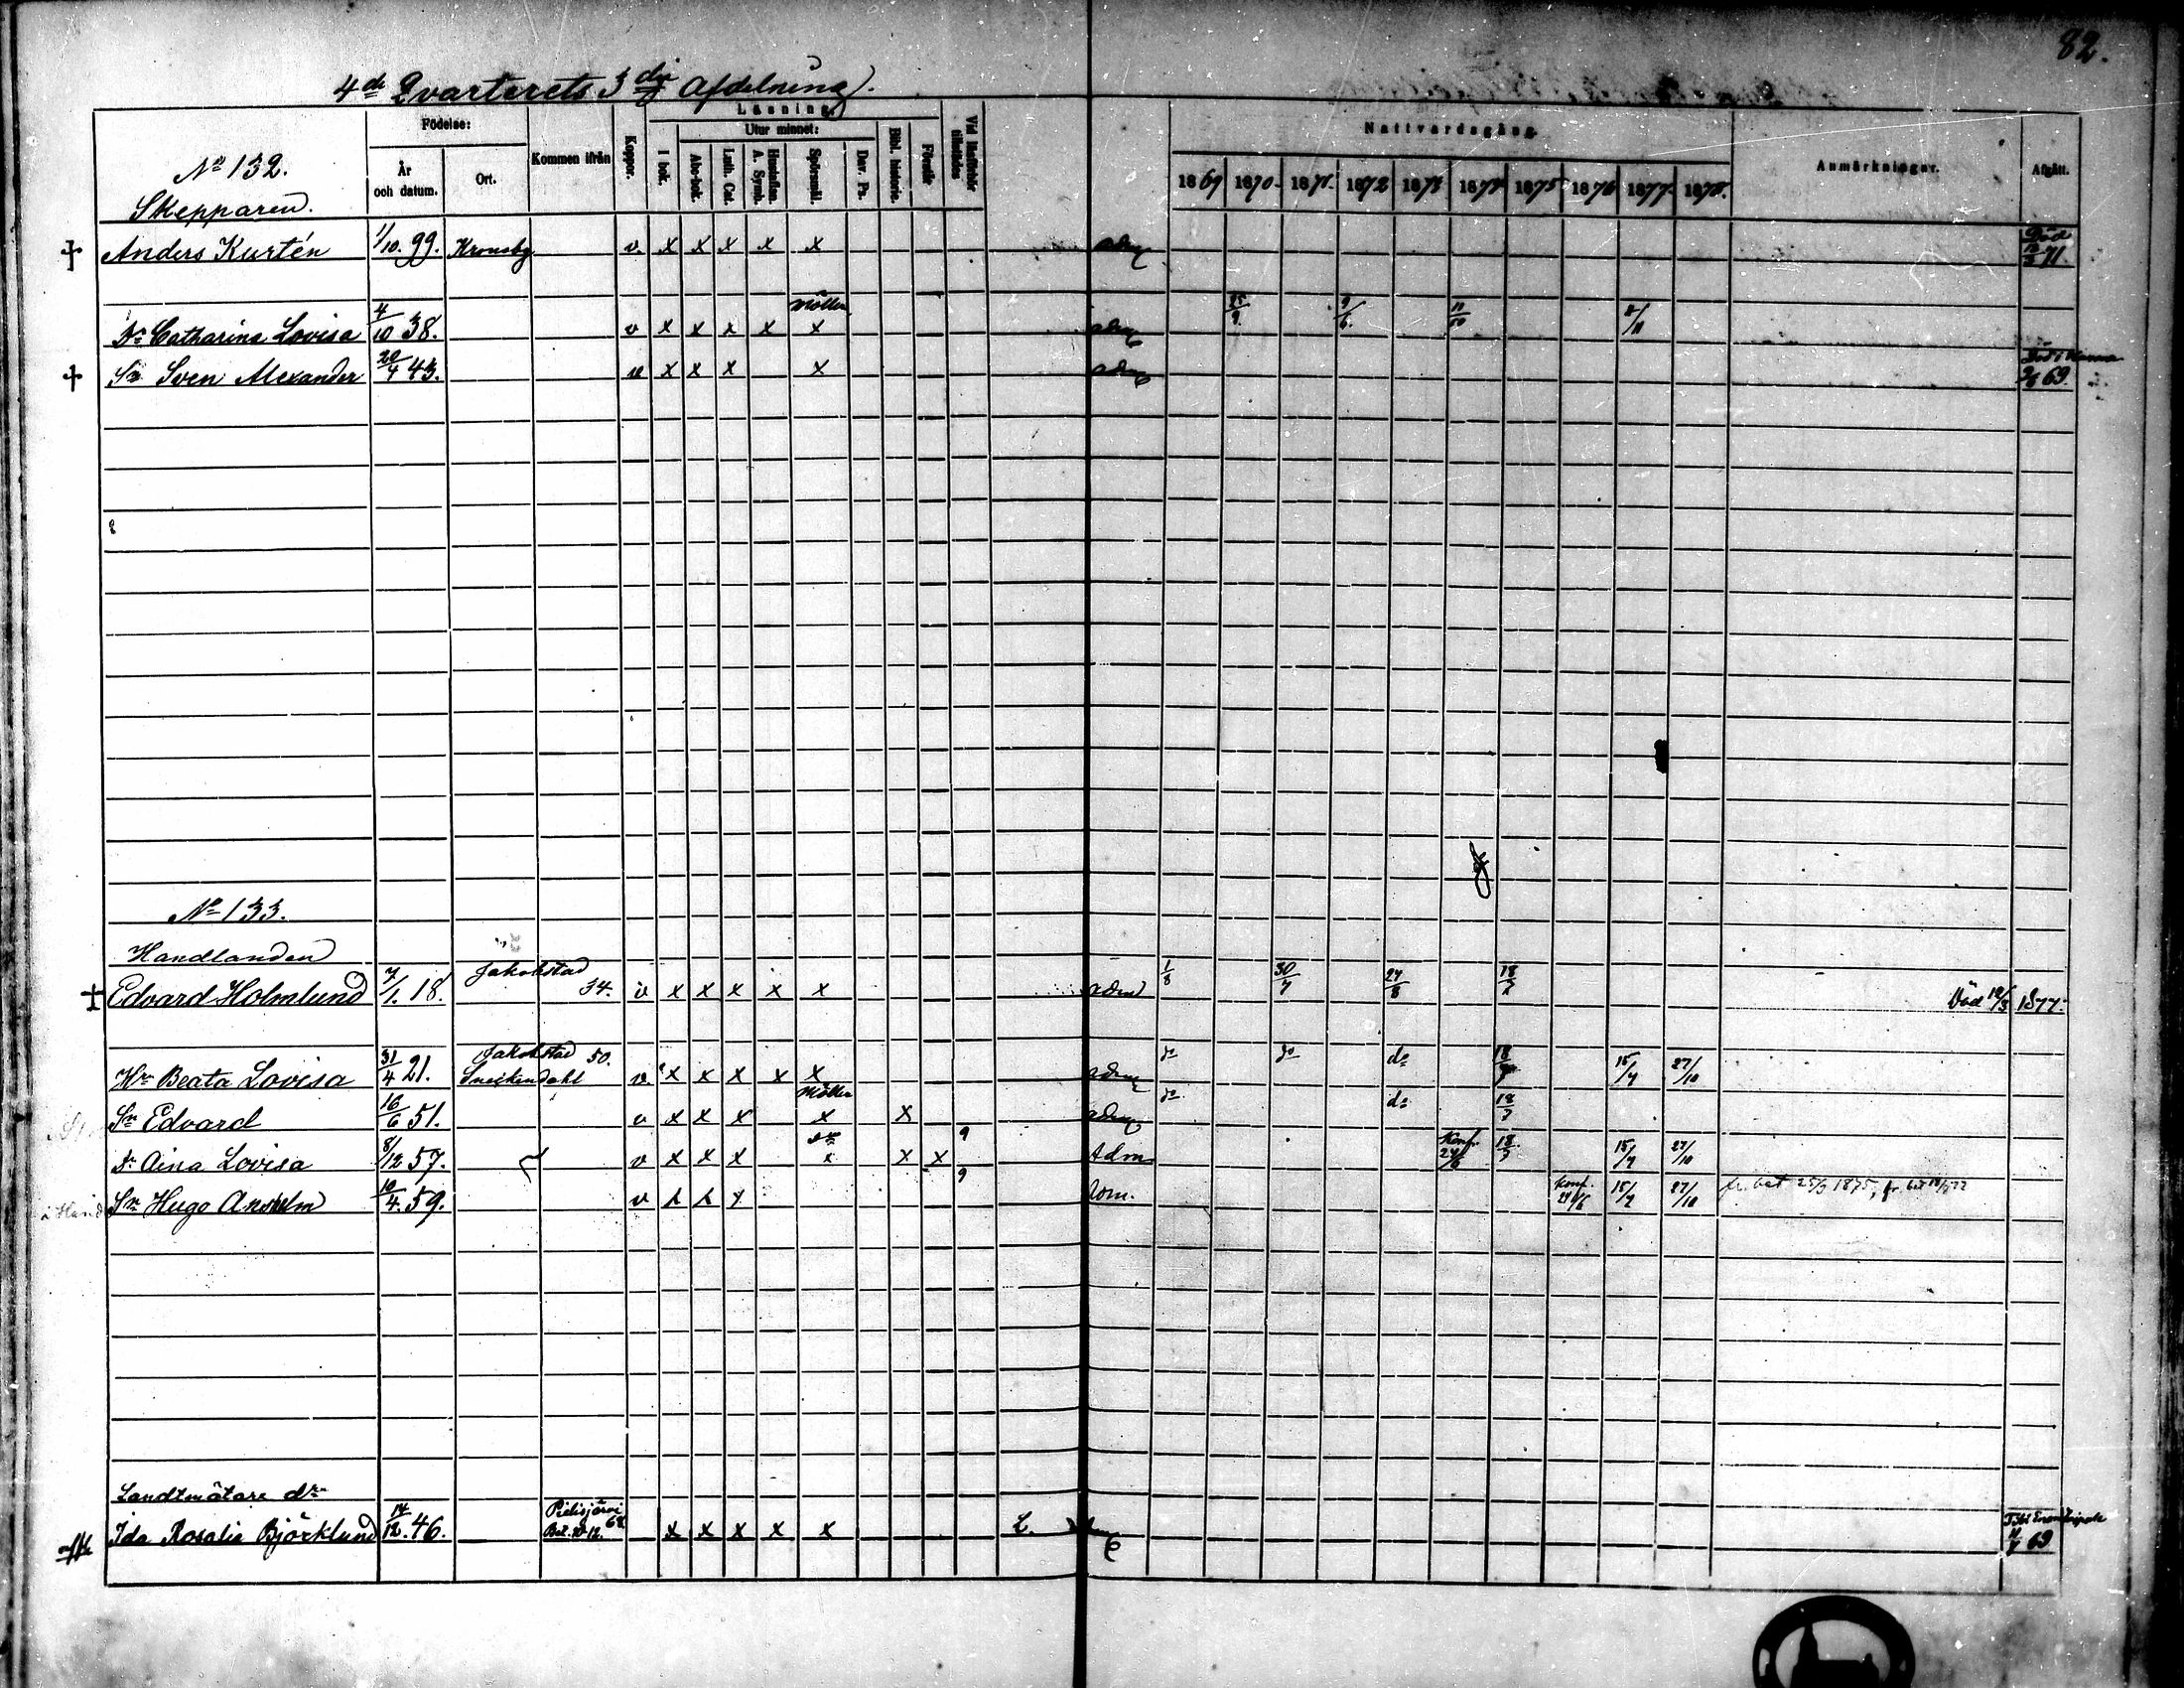 82.
4de Qvarterets 3dje Afdelning.
Födelse: Kommen ifrån Koppor. Läsning. Vid läsförhör tillstädes Nattvardsgång. Anmärkningar. Afgått.
År och datum. Ort. I bok. Utur minnet: Bibl. historie. Förstår
Abc-bok. Luth. Cat. Hustaflan. A. Symb. Spörsmål. Dav. Ps.
1869 1870. 1871. 1872 1873 1874 1875 1876 1877 1878.
No 132.
Skepparen
Anders Kurtén 1/10. 99. Kronoby v. x x x x x adm Död 71
Dr Catharina Lovisa 4/10 38. v x x x x Möller x adm 25/9. 9/6. 11/10 11/11
Sn Sven Alexander 20/4 43. v x x x x adm 69.
No 133.
Handlanden
Edvard Holmlund 7/1. 18. Jakobstad 34. v x x x x x adm 1/8 30/7 24/8 18/7 Död 12/3 1877.
Hu Beata Lovisa 31/4 21. Jakobstad 50. Sneckendahl v. x x x x x adm do do do 18/7 15/7 27/10
Sn Edvard 16/6 51. v x x x Möller x x adm do do 18/7
Dr Aina Lovisa 8/12 57. v x x x x x x 9 Adm Konf. 24/6 18/7 15/7 27/10
Sn Hugo Anselm 10/4. 59. v x x x 9 Konf. 15/7 27/10 fr. bet 25/3 1875,
Landtmätare dr
Ida Rosalia Björklund 14/12. 46. Pielisjärvi Bet. 20-12. 68 x x x x x 69